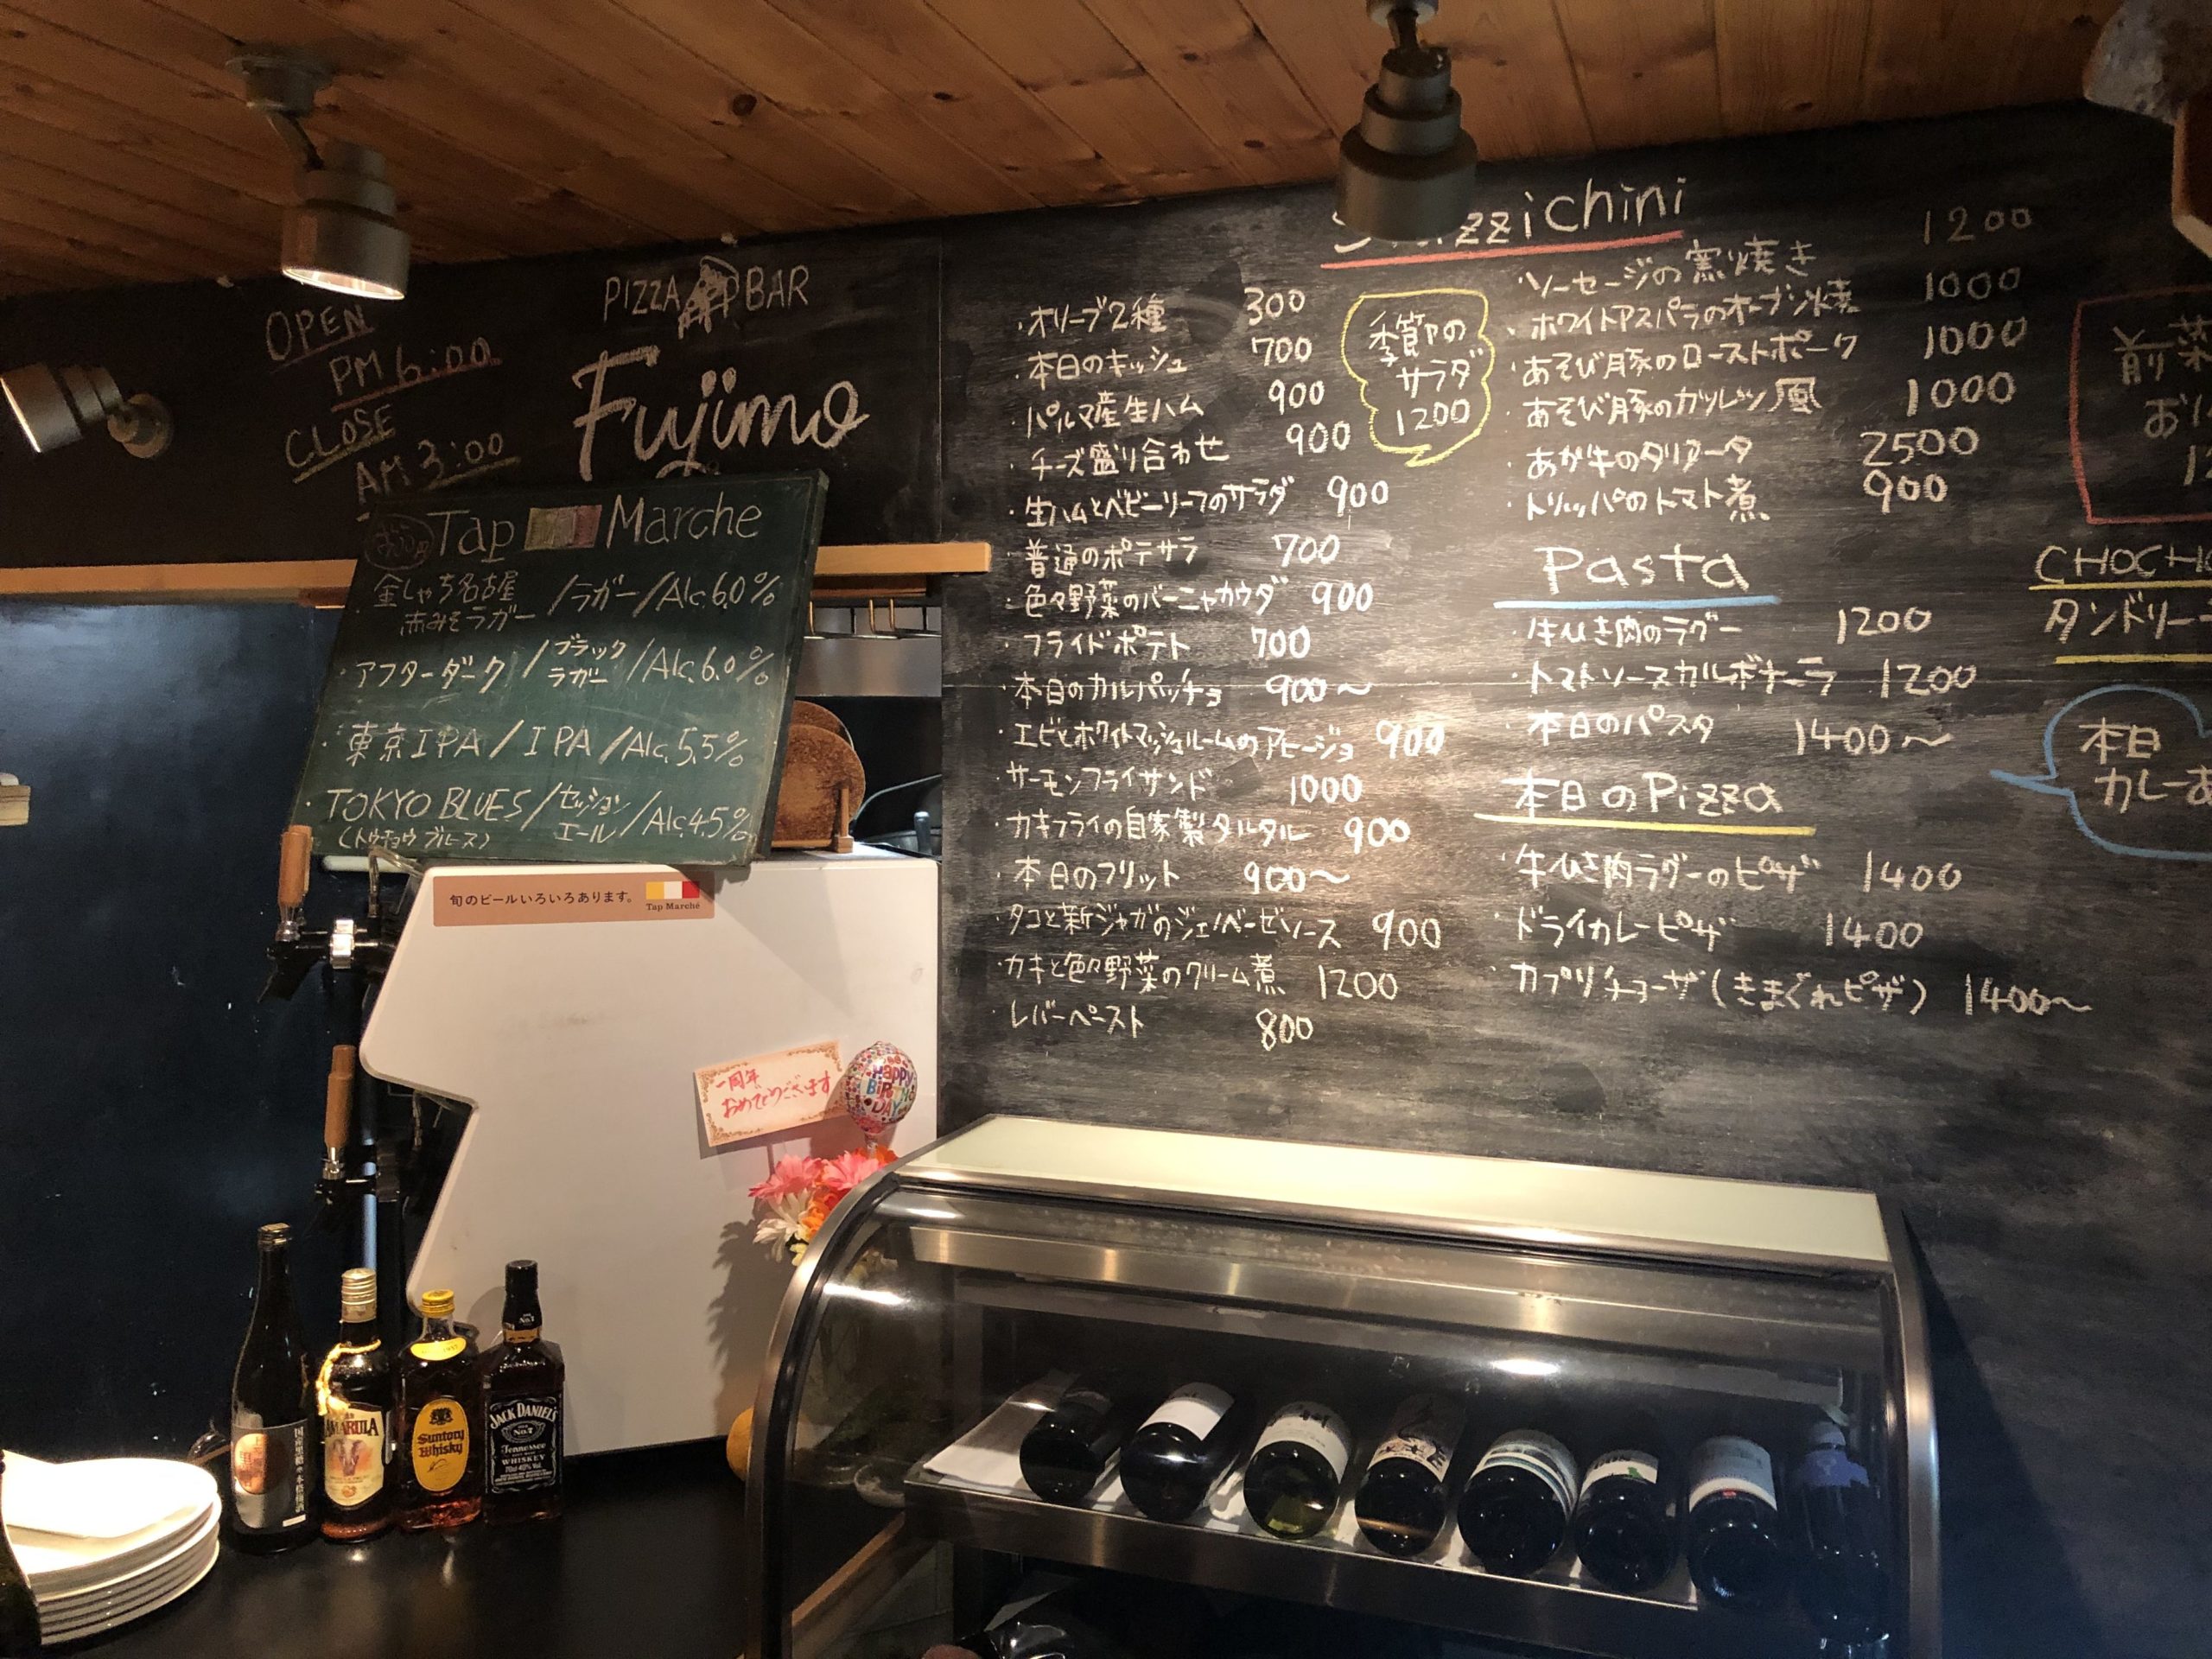 OPEN
PM 6:00
CLOSE
AM 3:00
PIZZA BAR
Fujimo
Tap Marche
金しゃち名古屋
赤みそラガー /ラガー/Alc.6.0%
・アフターダーク/ブラックラガー/Alc.6.0%
・東京IPA/IPA/Alc.5.5%
・TOKYO BLUES/セッションエール/Alc.4.5%
(トウキョウブルース)
旬のビールいろいろあります。
Tap Marché
一周年
おめでとうございます
HAPPY
BIRTHDAY
AMARULA
Suntory
Whisky
JACK DANIEL'S
Tennessee
WHISKEY
zzichini
・オリーブ2種 300
・本日のキッシュ 700
・パルマ産生ハム 900
・チーズ盛り合わせ 900
・生ハムとベビーリーフのサラダ 900
・普通のポテサラ 700
・色々野菜のバーニャカウダ 900
・フライドポテト 700
・本日のカルパッチョ 900〜
・エビとホワイトマッシュルームのアヒージョ 900
・サーモンフライサンド 1000
・カキフライの自家製タルタル 900
・本日のフリット 900〜
・タコと新ジャガのジェノベーゼソース 900
・カキと色々野菜のクリーム煮 1200
・レバーペースト 800
季節の
サラダ
1200
・ソーセージの窯焼き 1200
・ホワイトアスパラのオーブン焼 1000
・あそび豚のローストポーク 1000
・あそび豚のカツレツ風 1000
・あか牛のタリアータ 2500
・トリッパのトマト煮 900
Pasta
・牛ひき肉のラグー 1200
・トマトソースカルボナーラ 1200
・本日のパスタ 1400〜
本日のPizza
・牛ひき肉ラグーのピザ 1400
・ドライカレーピザ 1400
・カプリチョーザ(きまぐれピザ) 1400〜
前菜
CHOCH
タンドリー
本日
カレーあ